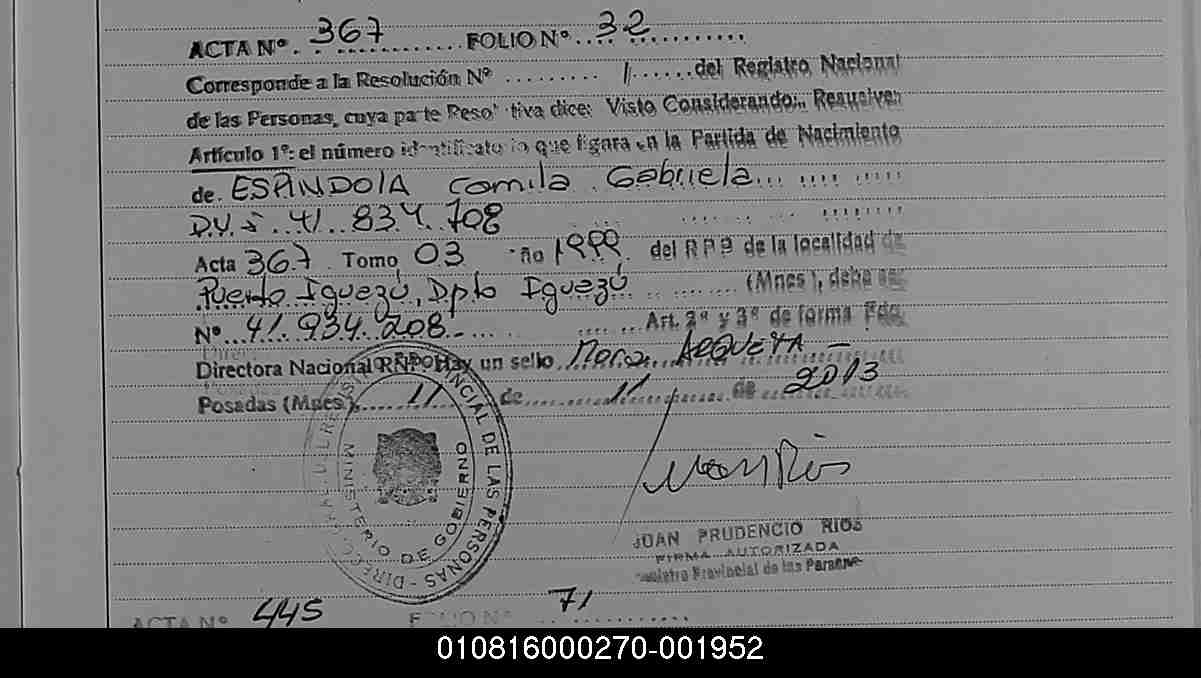 ACTA Nº. 367 FOLIO Nº. 32
Corresponde a la Resolución Nº ......... / ...... del Registro Nacional
de las Personas, cuya parte Resolutiva dice: Visto Considerando:, Resuelven
Artículo 1º: el número identificatorio que figura en la Partida de Nacimiento
de ESPINDOLA Camila Gabriela
41.834.708
Acta 367 Tomo 03 año 1999 del RPP de la localidad de
Puerto Iguazú, Dpto Iguazú (Mnes), debe ser
Nº 41.934.208 Art. 2º y 3º de forma Fdo.
Directora Nacional RNP. Hay un sello
Posadas (Mnes), 11 de 11 de 2013
PROVINCIAL DE LAS PERSONAS
MINISTERIO DE GOBIERNO
JUAN PRUDENCIO RIOS
FIRMA AUTORIZADA
Registro Provincial de las Personas
ACTA Nº 445 FOLIO Nº 71
010816000270-001952